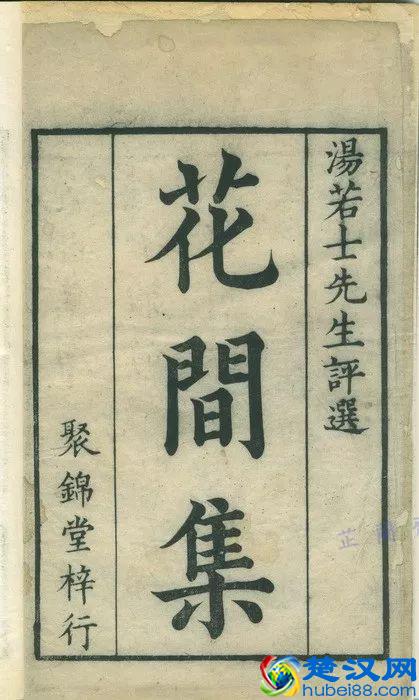 湯若士先生評選
花間集
聚錦堂梓行
芷蘭
楚汉网
hubei88.com